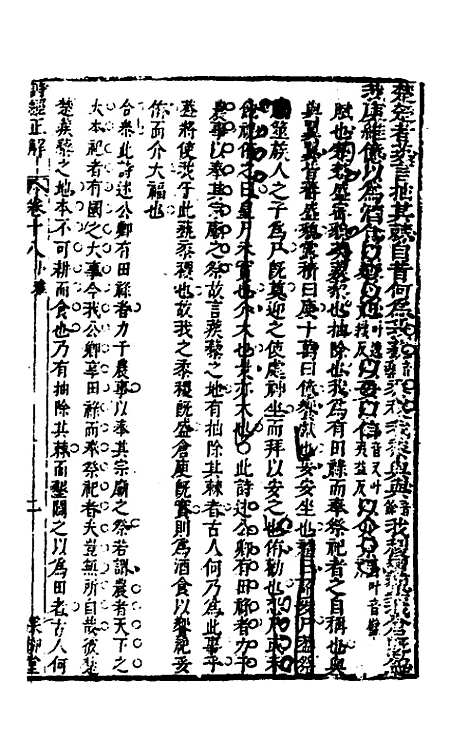 楚楚者茨言抽其棘自昔何為我蓺黍稷我黍與與我稷翼翼我倉既盈
我庾維億以為酒食以享以祀以妥以侑以介景福
賦也抽除也我為有田祿而奉祭祀者之自稱也與
與翼翼皆蕃盛貌露積曰庾十萬曰億饗獻也妥安坐也
筮族人之子為尸既奠迎之使處神坐而拜以安之也侑勸也恐尸或未
飽祝侑之曰皇尸未實也介大也景亦大也此詩述公卿有田祿者力于
農事以奉其宗廟之祭故言蒺藜之地有抽除其棘者古人何乃為此事乎
蓋將使我于此蓺黍稷也故我之黍稷既盛倉庾既實則為酒食以饗祀妥
侑而介大福也
合參此詩述公卿有田祿者力于農事以奉其宗廟之祭若謂農者天下之
大本祀者有國之大事今我公卿享田祿而奉祭祀者夫豈無所自哉彼楚
楚蒺藜之地本不可耕而食也乃有抽除其棘而墾闢之以為田者古人何
詩經正解
卷十八小雅
二